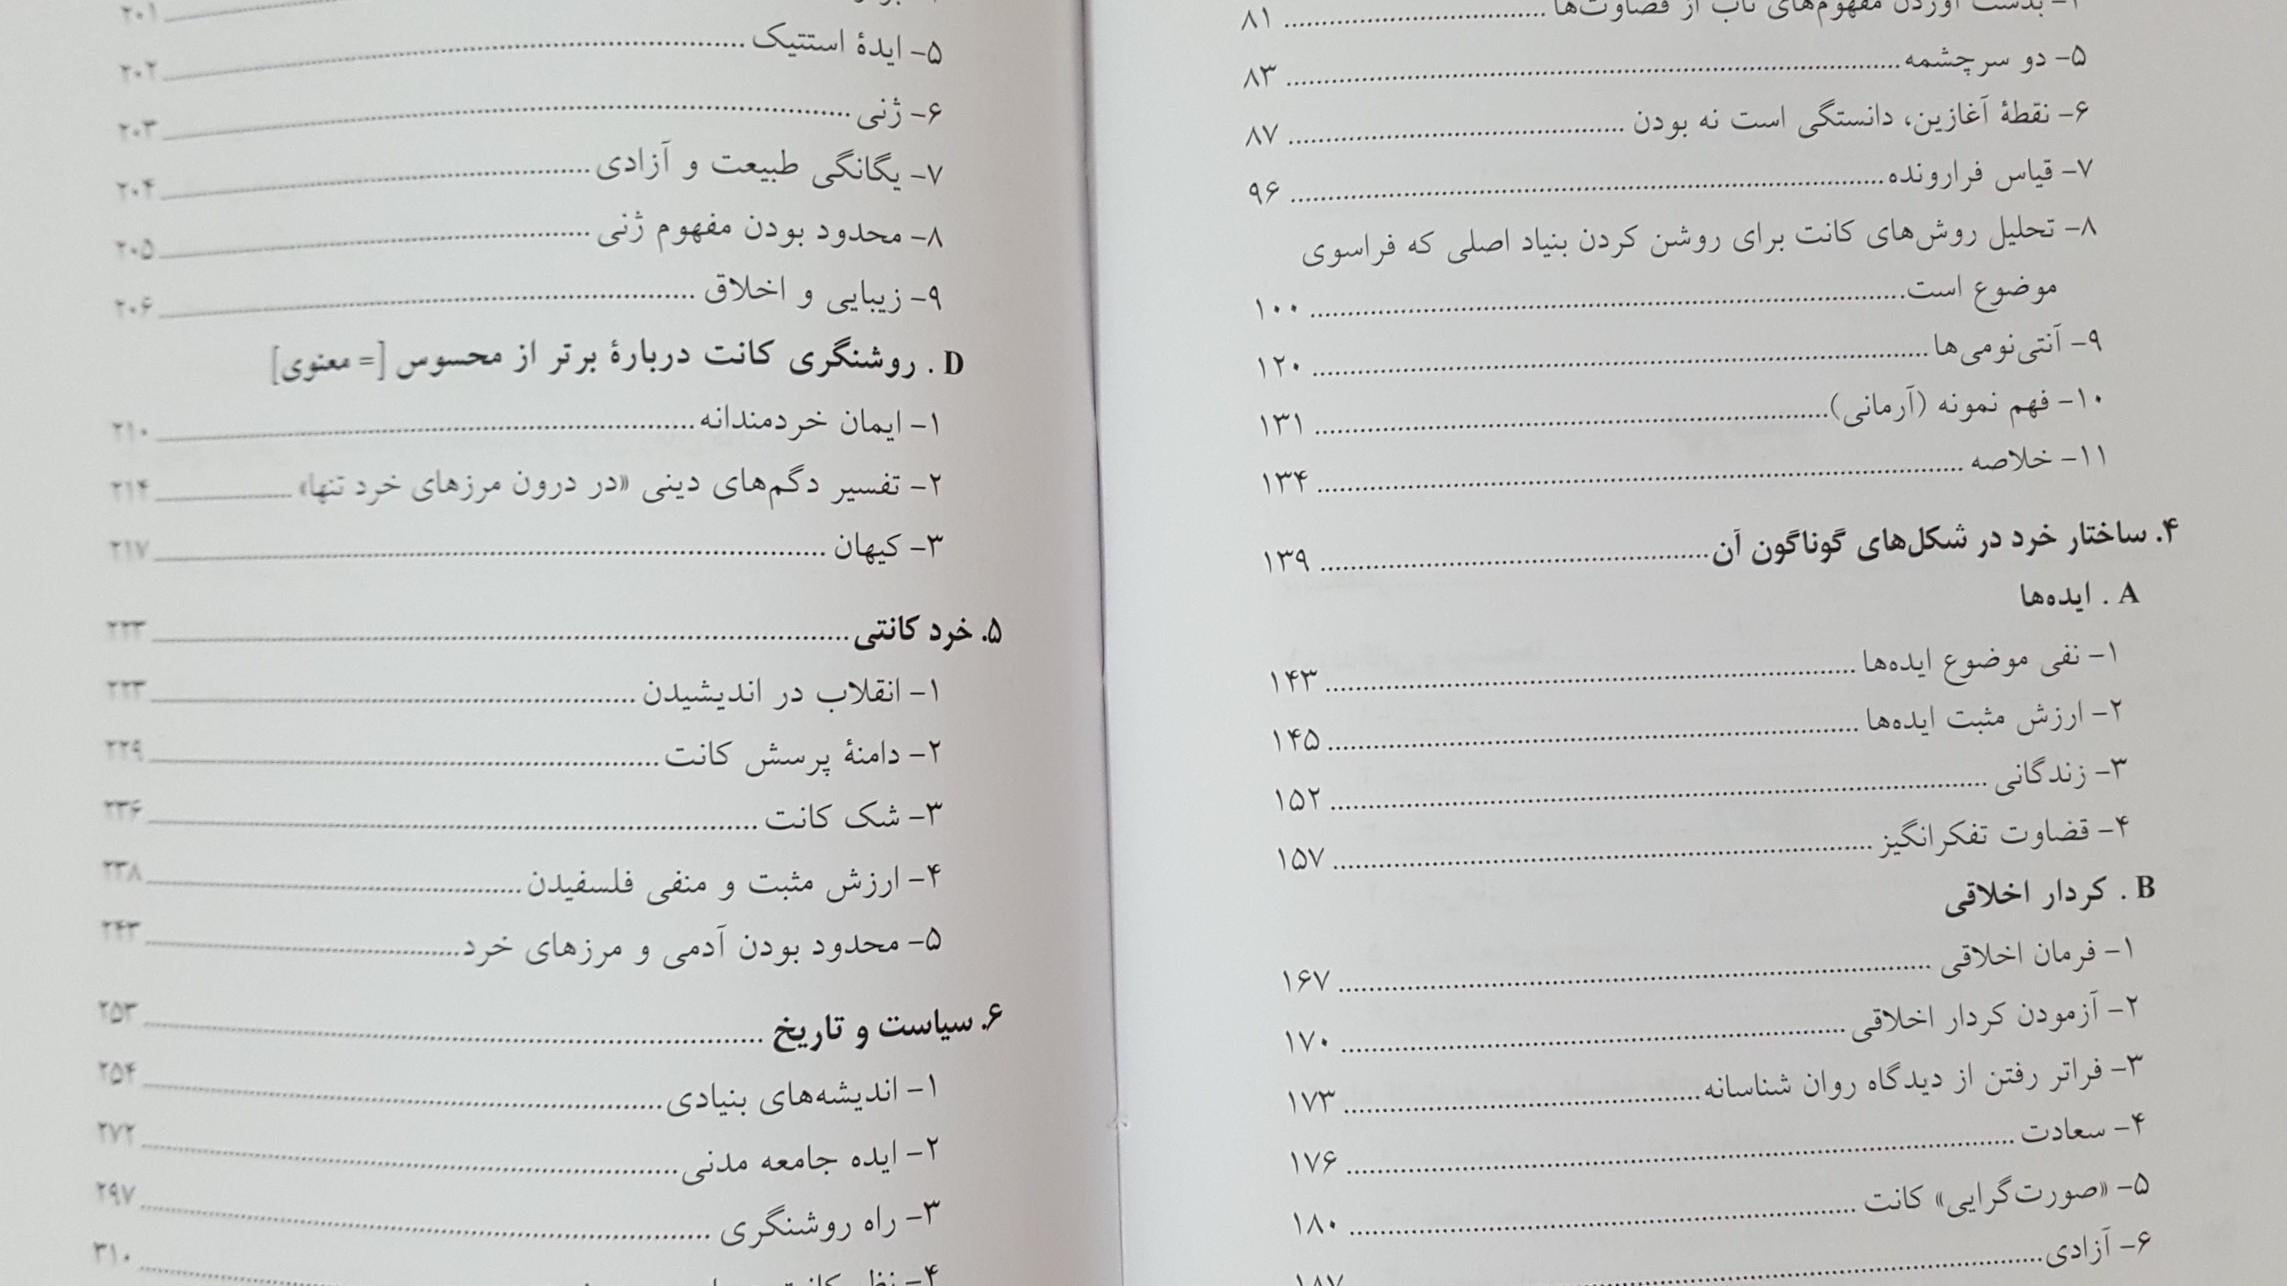 ۴- بدست آوردن مفهوم‌های ناب از قضاوت‌ها ........ ۸۱
۵- دو سرچشمه ........ ۸۳
۶- نقطهٔ آغازین، دانستگی است نه بودن ........ ۸۷
۷- قیاس فرارونده ........ ۹۶
۸- تحلیل روش‌های کانت برای روشن کردن بنیاد اصلی که فراسوی
موضوع است ........ ۱۰۰
۹- آنتی‌نومی‌ها ........ ۱۲۰
۱۰- فهم نمونه (آرمانی) ........ ۱۳۱
۱۱- خلاصه ........ ۱۳۴
۴. ساختار خرد در شکل‌های گوناگون آن ........ ۱۳۹
A . ایده‌ها
۱- نفی موضوع ایده‌ها ........ ۱۴۳
۲- ارزش مثبت ایده‌ها ........ ۱۴۵
۳- زندگانی ........ ۱۵۲
۴- قضاوت تفکرانگیز ........ ۱۵۷
B . کردار اخلاقی
۱- فرمان اخلاقی ........ ۱۶۷
۲- آزمودن کردار اخلاقی ........ ۱۷۰
۳- فراتر رفتن از دیدگاه روان شناسانه ........ ۱۷۳
۴- سعادت ........ ۱۷۶
۵- «صورت‌گرایی» کانت ........ ۱۸۰
۶- آزادی ........ ۱۸۷
۲۰۱
۵- ایدهٔ استتیک ........ ۲۰۲
۶- ژنی ........ ۲۰۳
۷- یگانگی طبیعت و آزادی ........ ۲۰۴
۸- محدود بودن مفهوم ژنی ........ ۲۰۵
۹- زیبایی و اخلاق ........ ۲۰۶
D . روشنگری کانت دربارهٔ برتر از محسوس [= معنوی]
۱- ایمان خردمندانه ........ ۲۱۰
۲- تفسیر دگم‌های دینی «در درون مرزهای خرد تنها» ........ ۲۱۴
۳- کیهان ........ ۲۱۷
۵. خرد کانتی ........ ۲۲۳
۱- انقلاب در اندیشیدن ........ ۲۲۳
۲- دامنهٔ پرسش کانت ........ ۲۲۹
۳- شک کانت ........ ۲۳۶
۴- ارزش مثبت و منفی فلسفیدن ........ ۲۳۸
۵- محدود بودن آدمی و مرزهای خرد ........ ۲۴۳
۶. سیاست و تاریخ ........ ۲۵۳
۱- اندیشه‌های بنیادی ........ ۲۵۴
۲- ایده جامعه مدنی ........ ۲۷۲
۳- راه روشنگری ........ ۲۹۷
۴- نظر کانت ........ ۳۱۰